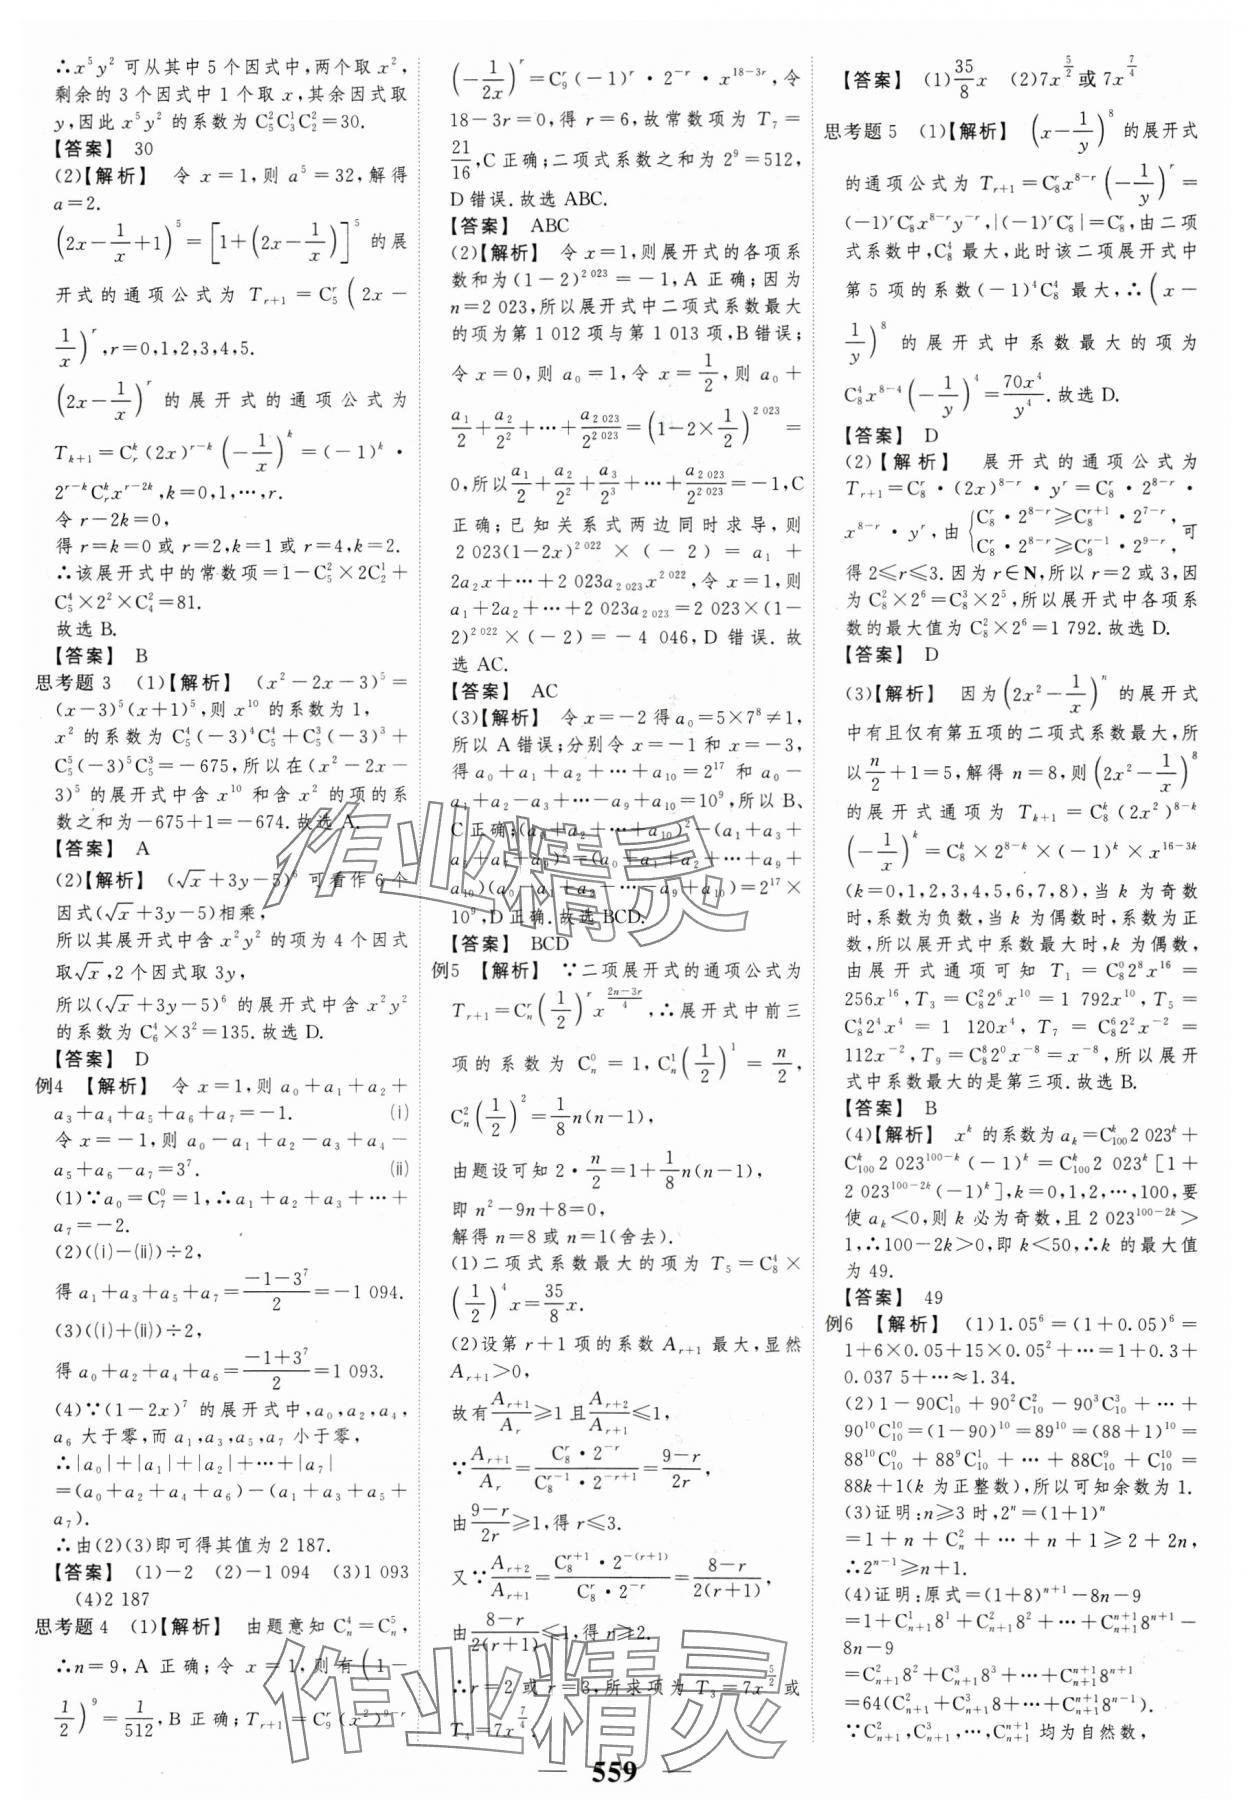 ∴x⁵y² 可从其中5个因式中,两个取 x²,
剩余的3个因式中1个取 x,其余因式取
y,因此 x⁵y² 的系数为 C₅²C₃¹C₂²=30.
【答案】 30
(2)【解析】 令 x=1,则 a⁵=32,解得
a=2.
(2x-1/x+1)⁵=[1+(2x-1/x)]⁵ 的展
开式的通项公式为 Tᵣ₊₁=C₅ʳ(2x-
1/x)ʳ,r=0,1,2,3,4,5.
(2x-1/x)ʳ 的展开式的通项公式为
Tₖ₊₁=Cᵣᵏ(2x)ʳ⁻ᵏ(-1/x)ᵏ=(-1)ᵏ·
2ʳ⁻ᵏCᵣᵏxʳ⁻²ᵏ,k=0,1,…,r.
令 r-2k=0,
得 r=k=0 或 r=2,k=1 或 r=4,k=2.
∴该展开式中的常数项=1-C₅²×2C₂¹+
C₅⁴×2²×C₄²=81.
故选 B.
【答案】 B
思考题3 (1)【解析】 (x²-2x-3)⁵=
(x-3)⁵(x+1)⁵,则 x¹⁰ 的系数为1,
x² 的系数为 C₅⁴(-3)⁴C₅⁴+C₅³(-3)³+
C₅⁵(-3)⁵C₅³=-675,所以在(x²-2x-
3)⁵ 的展开式中含 x¹⁰ 和含 x² 的项的系
数之和为-675+1=-674.故选 A.
【答案】 A
(2)【解析】 (√x+3y-5)⁶ 可看作6个
因式(√x+3y-5)相乘,
所以其展开式中含 x²y² 的项为4个因式
取√x,2个因式取3y,
所以(√x+3y-5)⁶ 的展开式中含 x²y²
的系数为 C₆⁴×3²=135.故选 D.
【答案】 D
例4 【解析】 令 x=1,则 a₀+a₁+a₂+
a₃+a₄+a₅+a₆+a₇=-1. (ⅰ)
令 x=-1,则 a₀-a₁+a₂-a₃+a₄-
a₅+a₆-a₇=3⁷. (ⅱ)
(1)∵a₀=C₇⁰=1,∴a₁+a₂+a₃+…+
a₇=-2.
(2)((ⅰ)-(ⅱ))÷2,
得 a₁+a₃+a₅+a₇=(-1-3⁷)/2=-1 094.
(3)((ⅰ)+(ⅱ))÷2,
得 a₀+a₂+a₄+a₆=(-1+3⁷)/2=1 093.
(4)∵(1-2x)⁷ 的展开式中,a₀,a₂,a₄,
a₆ 大于零,而 a₁,a₃,a₅,a₇ 小于零,
∴|a₀|+|a₁|+|a₂|+…+|a₇|
=(a₀+a₂+a₄+a₆)-(a₁+a₃+a₅+
a₇).
∴由(2)(3)即可得其值为2 187.
【答案】 (1)-2 (2)-1 094 (3)1 093
(4)2 187
思考题4 (1)【解析】 由题意知 Cₙ⁴=Cₙ⁵,
∴n=9,A 正确;令 x=1,则有(1-
1/2)⁹=1/512,B 正确;Tᵣ₊₁=C₉ʳ(x²)⁹⁻ʳ
(-1/2x)ʳ=C₉ʳ(-1)ʳ·2⁻ʳ·x¹⁸⁻³ʳ,令
18-3r=0,得 r=6,故常数项为 T₇=
21/16,C 正确;二项式系数之和为 2⁹=512,
D 错误.故选 ABC.
【答案】 ABC
(2)【解析】 令 x=1,则展开式的各项系
数和为(1-2)²⁰²³=-1,A 正确;因为
n=2 023,所以展开式中二项式系数最大
的项为第 1 012 项与第 1 013 项,B 错误;
令 x=0,则 a₀=1,令 x=1/2,则 a₀+
a₁/2+a₂/2²+…+a₂₀₂₃/2²⁰²³=(1-2×1/2)²⁰²³=
0,所以a₁/2+a₂/2²+a₃/2³+…+a₂₀₂₃/2²⁰²³=-1,C
正确;已知关系式两边同时求导,则
2 023(1-2x)²⁰²²×(-2)=a₁+
2a₂x+…+2 023a₂₀₂₃x²⁰²²,令 x=1,则
a₁+2a₂+…+2 023a₂₀₂₃=2 023×(1-
2)²⁰²²×(-2)=-4 046,D 错误.故
选 AC.
【答案】 AC
(3)【解析】 令 x=-2 得 a₀=5×7⁸≠1,
所以 A 错误;分别令 x=-1 和 x=-3,
得 a₀+a₁+a₂+…+a₁₀=2¹⁷ 和 a₀-
a₁+a₂-a₃+…-a₉+a₁₀=10⁹,所以 B、
C 正确;(a₀+a₂+…+a₁₀)²-(a₁+a₃+
a₅+a₇+a₉)²=(a₀+a₁+a₂+…+a₉+
a₁₀)(a₀-a₁+a₂-…-a₉+a₁₀)=2¹⁷×
10⁹,D 正确.故选 BCD.
【答案】 BCD
例5 【解析】 ∵二项展开式的通项公式为
Tᵣ₊₁=Cₙʳ(1/2)ʳx^((2n-3r)/4),∴展开式中前三
项的系数为 Cₙ⁰=1,Cₙ¹(1/2)¹=n/2,
Cₙ²(1/2)²=1/8n(n-1),
由题设可知 2·n/2=1+1/8n(n-1),
即 n²-9n+8=0,
解得 n=8 或 n=1(舍去).
(1)二项式系数最大的项为 T₅=C₈⁴×
(1/2)⁴x=35/8x.
(2)设第 r+1 项的系数 Aᵣ₊₁ 最大,显然
Aᵣ₊₁>0,
故有Aᵣ₊₁/Aᵣ≥1且Aᵣ₊₂/Aᵣ₊₁≤1,
∵Aᵣ₊₁/Aᵣ=(C₈ʳ·2⁻ʳ)/(C₈ʳ⁻¹·2⁻ʳ⁺¹)=(9-r)/2r,
由(9-r)/2r≥1,得 r≤3.
又∵Aᵣ₊₂/Aᵣ₊₁=(C₈ʳ⁺¹·2⁻⁽ʳ⁺¹⁾)/(C₈ʳ·2⁻ʳ)=(8-r)/(2(r+1)),
由(8-r)/(2(r+1))≤1,解得 r≥2.
∴r=2 或 r=3,所求项为 T₃=7x^(5/2) 或
T₄=7x^(7/4).
【答案】 (1)35/8x (2)7x^(5/2)或 7x^(7/4)
思考题5 (1)【解析】 (x-1/y)⁸ 的展开式
的通项公式为 Tᵣ₊₁=C₈ʳx⁸⁻ʳ(-1/y)ʳ=
(-1)ʳC₈ʳx⁸⁻ʳy⁻ʳ,|(-1)ʳC₈ʳ|=C₈ʳ,由二项
式系数中,C₈⁴ 最大,此时该二项展开式中
第5项的系数(-1)⁴C₈⁴ 最大,∴(x-
1/y)⁸ 的展开式中系数最大的项为
C₈⁴x⁸⁻⁴(-1/y)⁴=70x⁴/y⁴.故选 D.
【答案】 D
(2)【解析】 展开式的通项公式为
Tᵣ₊₁=C₈ʳ·(2x)⁸⁻ʳ·yʳ=C₈ʳ·2⁸⁻ʳ·
x⁸⁻ʳ·yʳ,由{C₈ʳ·2⁸⁻ʳ≥C₈ʳ⁺¹·2⁷⁻ʳ, C₈ʳ·2⁸⁻ʳ≥C₈ʳ⁻¹·2⁹⁻ʳ, 可
得 2≤r≤3.因为 r∈N,所以 r=2 或 3,因
为 C₈²×2⁶=C₈³×2⁵,所以展开式中各项系
数的最大值为 C₈²×2⁶=1 792.故选 D.
【答案】 D
(3)【解析】 因为(2x²-1/x)ⁿ 的展开式
中有且仅有第五项的二项式系数最大,所
以n/2+1=5,解得 n=8,则(2x²-1/x)⁸
的展开式通项为 Tₖ₊₁=C₈ᵏ(2x²)⁸⁻ᵏ
(-1/x)ᵏ=C₈ᵏ×2⁸⁻ᵏ×(-1)ᵏ×x¹⁶⁻³ᵏ
(k=0,1,2,3,4,5,6,7,8),当 k 为奇数
时,系数为负数,当 k 为偶数时,系数为正
数,所以展开式中系数最大时,k 为偶数,
由展开式通项可知 T₁=C₈⁰2⁸x¹⁶=
256x¹⁶,T₃=C₈²2⁶x¹⁰=1 792x¹⁰,T₅=
C₈⁴2⁴x⁴=1 120x⁴,T₇=C₈⁶2²x⁻²=
112x⁻²,T₉=C₈⁸2⁰x⁻⁸=x⁻⁸,所以展开
式中系数最大的是第三项.故选 B.
【答案】 B
(4)【解析】 xᵏ 的系数为 aₖ=C₁₀₀ᵏ2 023ᵏ+
C₁₀₀ᵏ2 023¹⁰⁰⁻ᵏ(-1)ᵏ=C₁₀₀ᵏ2 023ᵏ[1+
2 023¹⁰⁰⁻²ᵏ(-1)ᵏ],k=0,1,2,…,100,要
使 aₖ<0,则 k 必为奇数,且 2 023¹⁰⁰⁻²ᵏ>
1,∴100-2k>0,即 k<50,∴k 的最大值
为49.
【答案】 49
例6 【解析】 (1)1.05⁶=(1+0.05)⁶=
1+6×0.05+15×0.05²+…=1+0.3+
0.037 5+…≈1.34.
(2)1-90C₁₀¹+90²C₁₀²-90³C₁₀³+…+
90¹⁰C₁₀¹⁰=(1-90)¹⁰=89¹⁰=(88+1)¹⁰=
88¹⁰C₁₀⁰+88⁹C₁₀¹+…+88C₁₀⁹+C₁₀¹⁰=
88k+1(k 为正整数),所以可知余数为1.
(3)证明:n≥3 时,2ⁿ=(1+1)ⁿ
=1+n+Cₙ²+…+n+1≥2+2n,
∴2ⁿ⁻¹≥n+1.
(4)证明:原式=(1+8)ⁿ⁺¹-8n-9
=1+Cₙ₊₁¹8¹+Cₙ₊₁²8²+…+Cₙ₊₁ⁿ⁺¹8ⁿ⁺¹-
8n-9
=Cₙ₊₁²8²+Cₙ₊₁³8³+…+Cₙ₊₁ⁿ⁺¹8ⁿ⁺¹
=64(Cₙ₊₁²+Cₙ₊₁³8+…+Cₙ₊₁ⁿ⁺¹8ⁿ⁻¹).
∵Cₙ₊₁²,Cₙ₊₁³,…,Cₙ₊₁ⁿ⁺¹ 均为自然数,
作业精灵
作业精灵
559